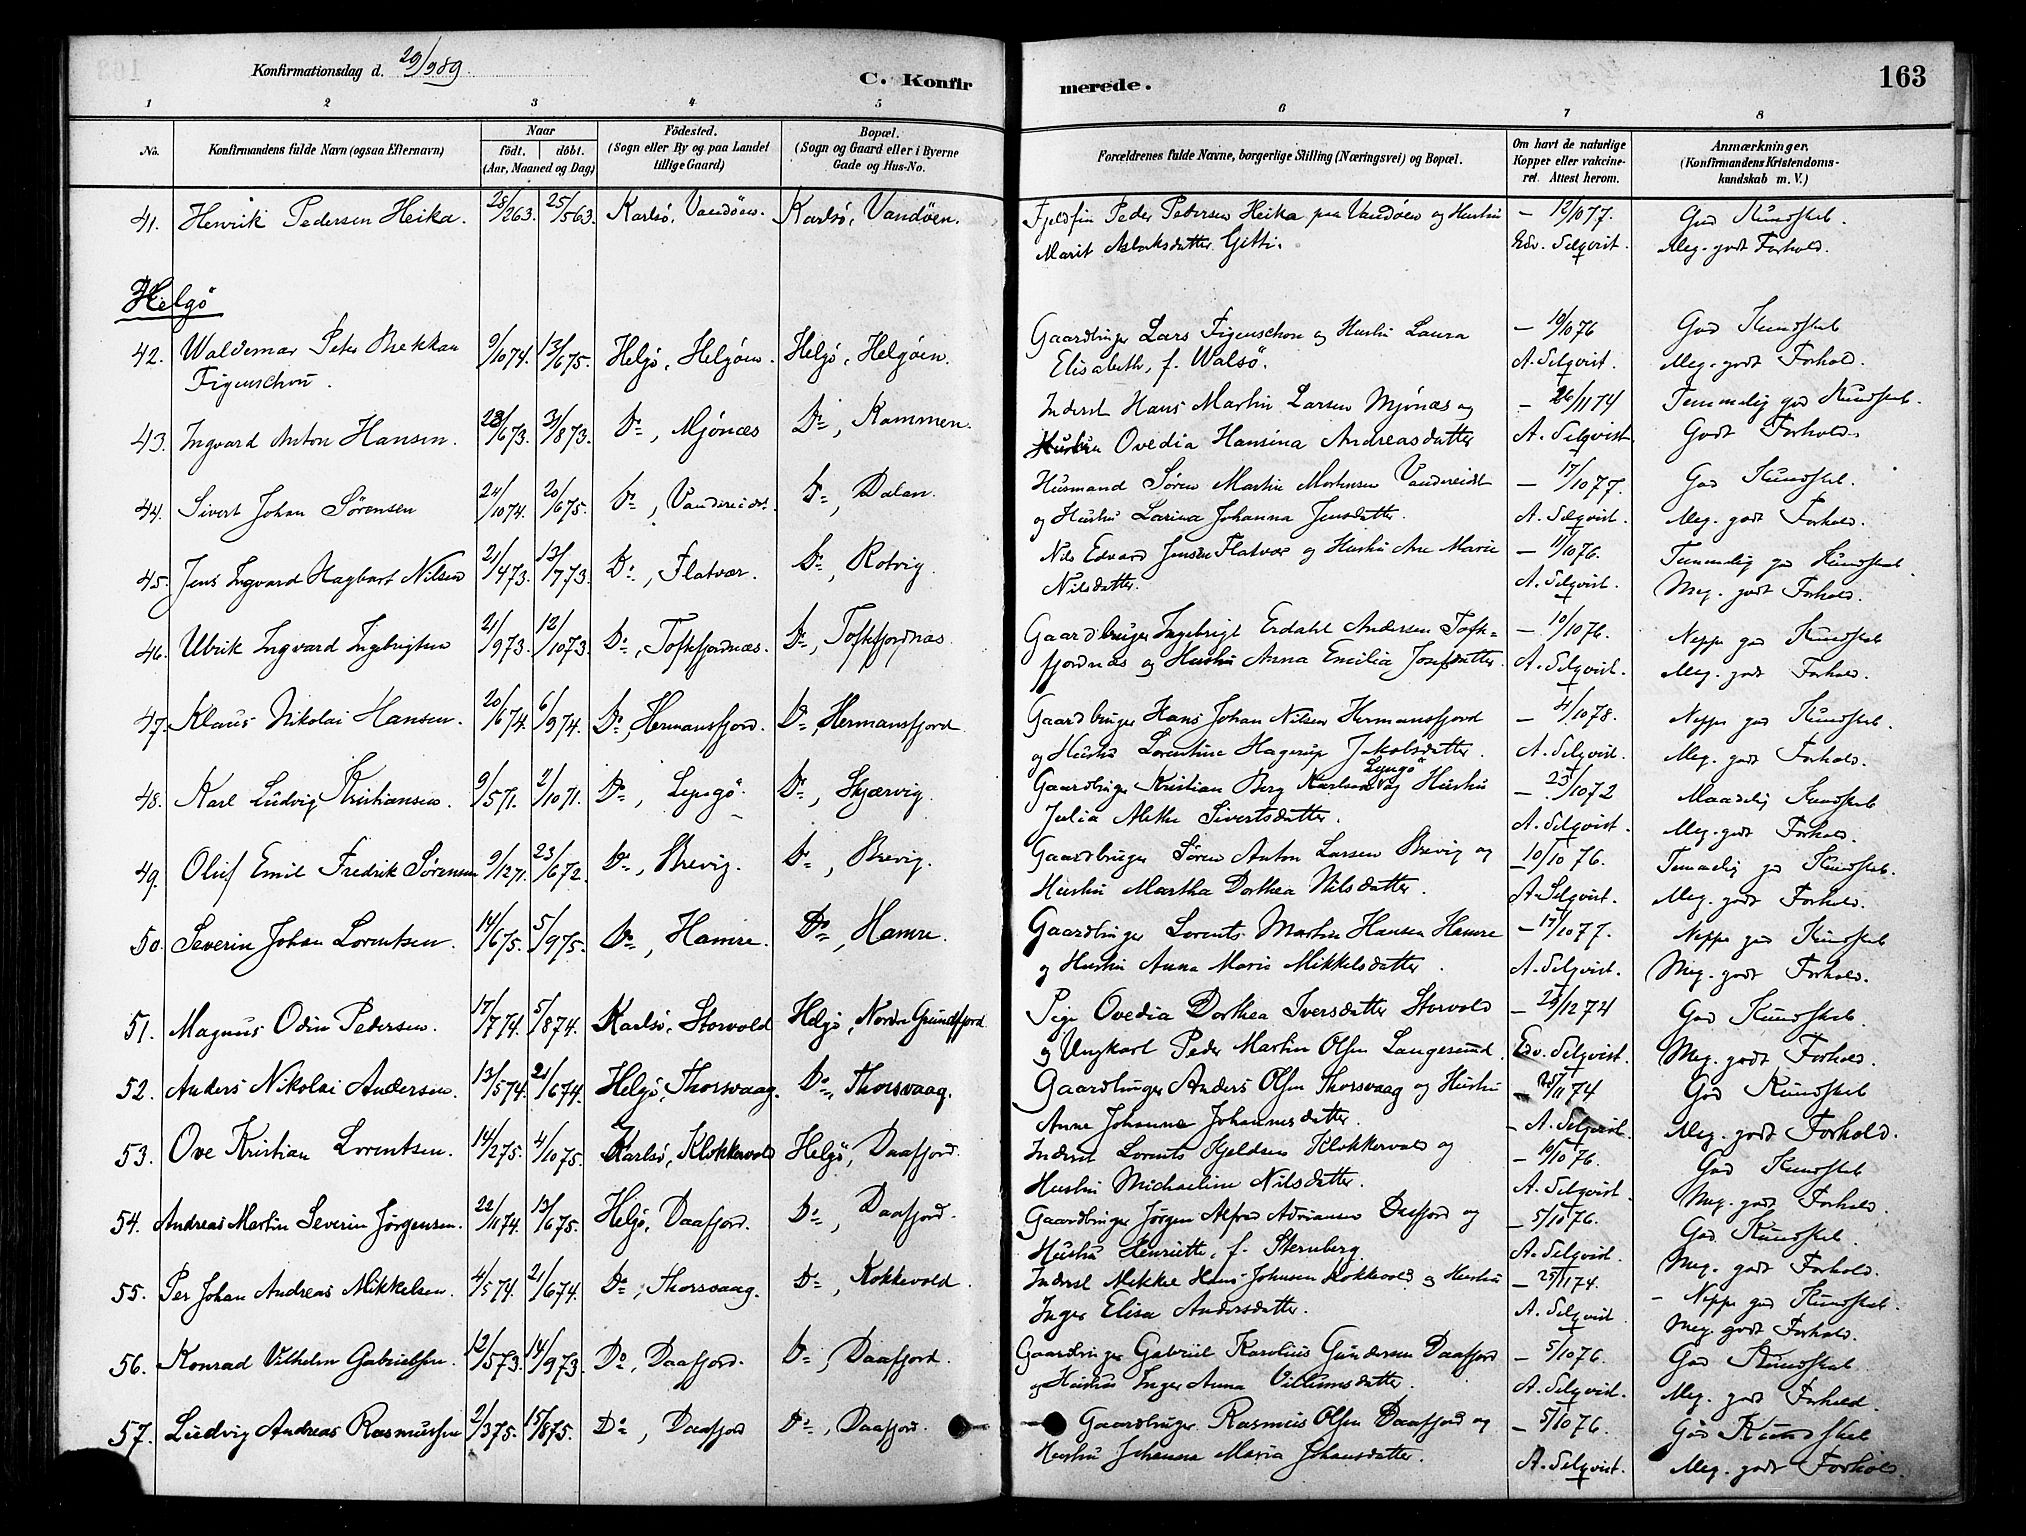 Konfirmationsdag d. 29/9 89
C. Konfirmerede.
163
1 2 3 4 5 6 7 8
No. Konfirmandens fulde Navn (ogsaa Efternavn) Naar födt, döbt. (Aar, Maaned og Dag) Födested. (Sogn eller By og paa Landet tillige Gaard) Bopæl. (Sogn og Gaard eller i Byerne Gade og Hus-No. Forældrenes fulde Navne, borgerlige Stilling (Næringsvei) og Bopæl. Om havt de naturlige Kopper eller vakcineret. Attest herom. Anmærkninger. (Konfirmandens Kristendomskundskab m. V.)
41. Henrik Pedersen Heika. 28/2 63. 25/5 63. Karlsö, Vandöen. Karlsö, Vandöen. Fjeldfin Peder Pedersen Heika paa Vandöen og Hustru – 12/10 77. God Kundskab.
Marit Aslaksdatter Gitti. Edv. Selqvist. Meg. godt Forhold.
Helgö
42. Waldemar Peter Brekkan 9/10 74. 13/6 75. Helgö, Helgöen. Helgö, Helgöen. Gaardbruger Lars Figenschou og Hustru Laura – 10/10 76 God Kundskab
Figenschou. Elisabeth, f. Walsö. A. Selqvist. Meg. godt Forhold.
43. Ingvard Anton Hansen. 28/6 73. 31/8 73. Do, Mjönæs Do, Kammen. Inderst Hans Martin Larsen Mjönæs og – 26/11 74 Temmelig god Kundskab.
Hustru Ovedia Hansina Andreasdatter A. Selqvist. Godt Forhold.
44. Sivert Johan Sörensen 24/10 74. 20/6 75. Do, Vandereidet. Do, Dalan. Husmand Sören Martin Mortensen Vandereidet – 17/10 77. God Kundskab.
og Hustru Larina Johanna Jensdatter. A. Selqvist. Meg. godt Forhold.
45. Jens Ingvard Hagbart Nilsen 21/4 73. 13/7 73. Do, Flatvær. Do, Rotvig. Nils Edvard Jensen Flatvær og Hustru Ane Marie – 11/10 76. Temmelig god Kundskab.
Nilsdatter. A. Selqvist. Meg. godt Forhold.
46. Ulrik Ingvard Ingebrigtsen 21/9 73. 12/10 73. Do, Tofkfjordnæs. Do, Tofkfjordnæs. Gaardbruger Ingebrigt Erdahl Andersen Tofk= – 10/10 76. Neppe god Kundskab
fjordnæs og Hustru Anna Emilia Josefsdatter. A. Selqvist. Meg. godt Forhold.
47. Klaus Nikolai Hansen. 20/6 74. 6/9 74. Do, Hermansfjord. Do, Hermansfjord. Gaardbruger Hans Johan Nilsen Hermansfjord – 4/10 78. Neppe god Kundskab.
og Hustru Lorentine Hagerup Jakobsdatter. A. Selqvist. Meg. godt Forhold.
48. Karl Ludvig Kristiansen. 9/5 71. 2/10 71. Do, Lyngö. Do, Skjærvig. Gaardbruger Kristian Berg Karlsen Lyngö og Hustru – 23/10 72 Maadelig Kundskab
Julia Methe Sivertsdatter. A. Selqvist. Meg. godt Forhold.
49. Oluf Emil Fredrik Sörensen 9/12 71. 23/6 72. Do, Brevig. Do, Brevig. Gaardbruger Sören Anton Larsen Brevig og – 10/10 76. Temmelig god Kundskab.
Hustru Martha Dorthea Nilsdatter. A. Selqvist. Meg. godt Forhold.
50. Severin Johan Lorentsen. 14/6 75. 5/9 75. Do, Hamre. Do, Hamre. Gaardbruger Lorents Martin Hansen Hamre – 17/10 77. Neppe god Kundskab
og Hustru Anna Maria Mikkelsdatter. A. Selqvist. Meg. godt Forhold.
51. Magnus Odin Pedersen. 17/7 74. 5/8 74. Karlsö, Storvold Helgö, Nordre Grundfjord Pige Ovedia Dorthea Iversdatter Storvold – 29/12 74 God Kundskab.
og Ungkarl Peder Martin Olsen Langesund. Edv. Selqvist. Meg. godt Forhold.
52. Anders Nikolai Andersen. 13/5 74. 21/6 74. Helgö, Thorsvaag. Do, Thorsvaag. Gaardbruger Anders Olsen Thorsvaag og Hustru – 25/11 74 God Kundskab
Anne Johanna Johannesdatter. A. Selqvist. Meg. godt Forhold.
53. Ove Kristian Lorentsen. 14/2 75. 4/10 75. Karlsö, Klokkervold Helgö, Daafjord. Inderst Lorents Kjeldsen Klokkervold og – 10/10 76. God Kundskab
Hustru Michaeline Nilsdatter. A. Selqvist. Meg. godt Forhold.
54. Andreas Martin Severin Jörgensen. 22/11 74. 13/6 75. Helgö, Daafjord. Do, Daafjord. Gaardbruger Jörgen Alfred Adriansen Daafjord og – 5/10 76. God Kundskab.
Hustru Henriette, f. Sternberg. A. Selqvist. Meg. godt Forhold.
55. Per Johan Andreas Mikkelsen. 4/5 74. 21/6 74. Do, Thorsvaag. Do, Kokkevold. Inderst Mikkel Hans Johnsen Kokkvold og Hustru – 25/11 74. – Neppe god Kundskab.
Inger Elisa Andersdatter. A. Selqvist Meg. godt Forhold.
56. Konrad Vilhelm Gabrielsen. 12/5 73. 14/9 73. Do, Daafjord. Do, Daafjord. Gaardbruger Gabriel Karolius Gundersen Daafjord – 5/10 76. God Kundskab.
og Hustru Inger Anna Villumsdatter. A. Selqvist. Meg. godt Forhold.
57. Ludvig Andreas Rasmussen 2/3 75. 15/8 75. Do, Daafjord Do, Daafjord. Gaardbruger Rasmus Olsen Daafjord og – 5/10 76. God Kundskab
Hustru Johanna Maria Johansdatter. A. Selqvist. Meg. godt Forhold.